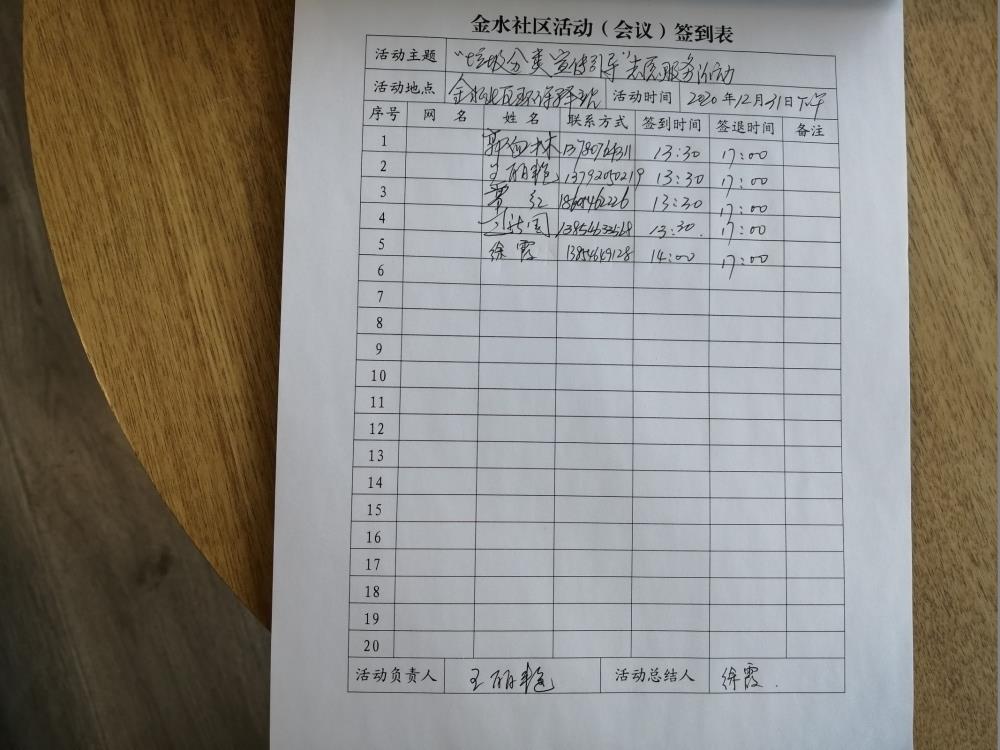 金水社区活动（会议）签到表
活动主题 "垃圾分类宣传引导"志愿服务活动
活动地点 金水社区环保驿站 活动时间 2020年12月31日下午
序号 网 名 姓 名 联系方式 签到时间 签退时间 备注
1 郭向林 13780764311 13:30 17:00
2 王丽艳 13792050219 13:30 17:00
3 红 13:30 17:00
4 国 13854633568 13:30. 17:00
5 徐霞 13854649128 14:00 17:00
6
7
8
9
10
11
12
13
14
15
16
17
18
19
20
活动负责人 王丽艳 活动总结人 徐霞.